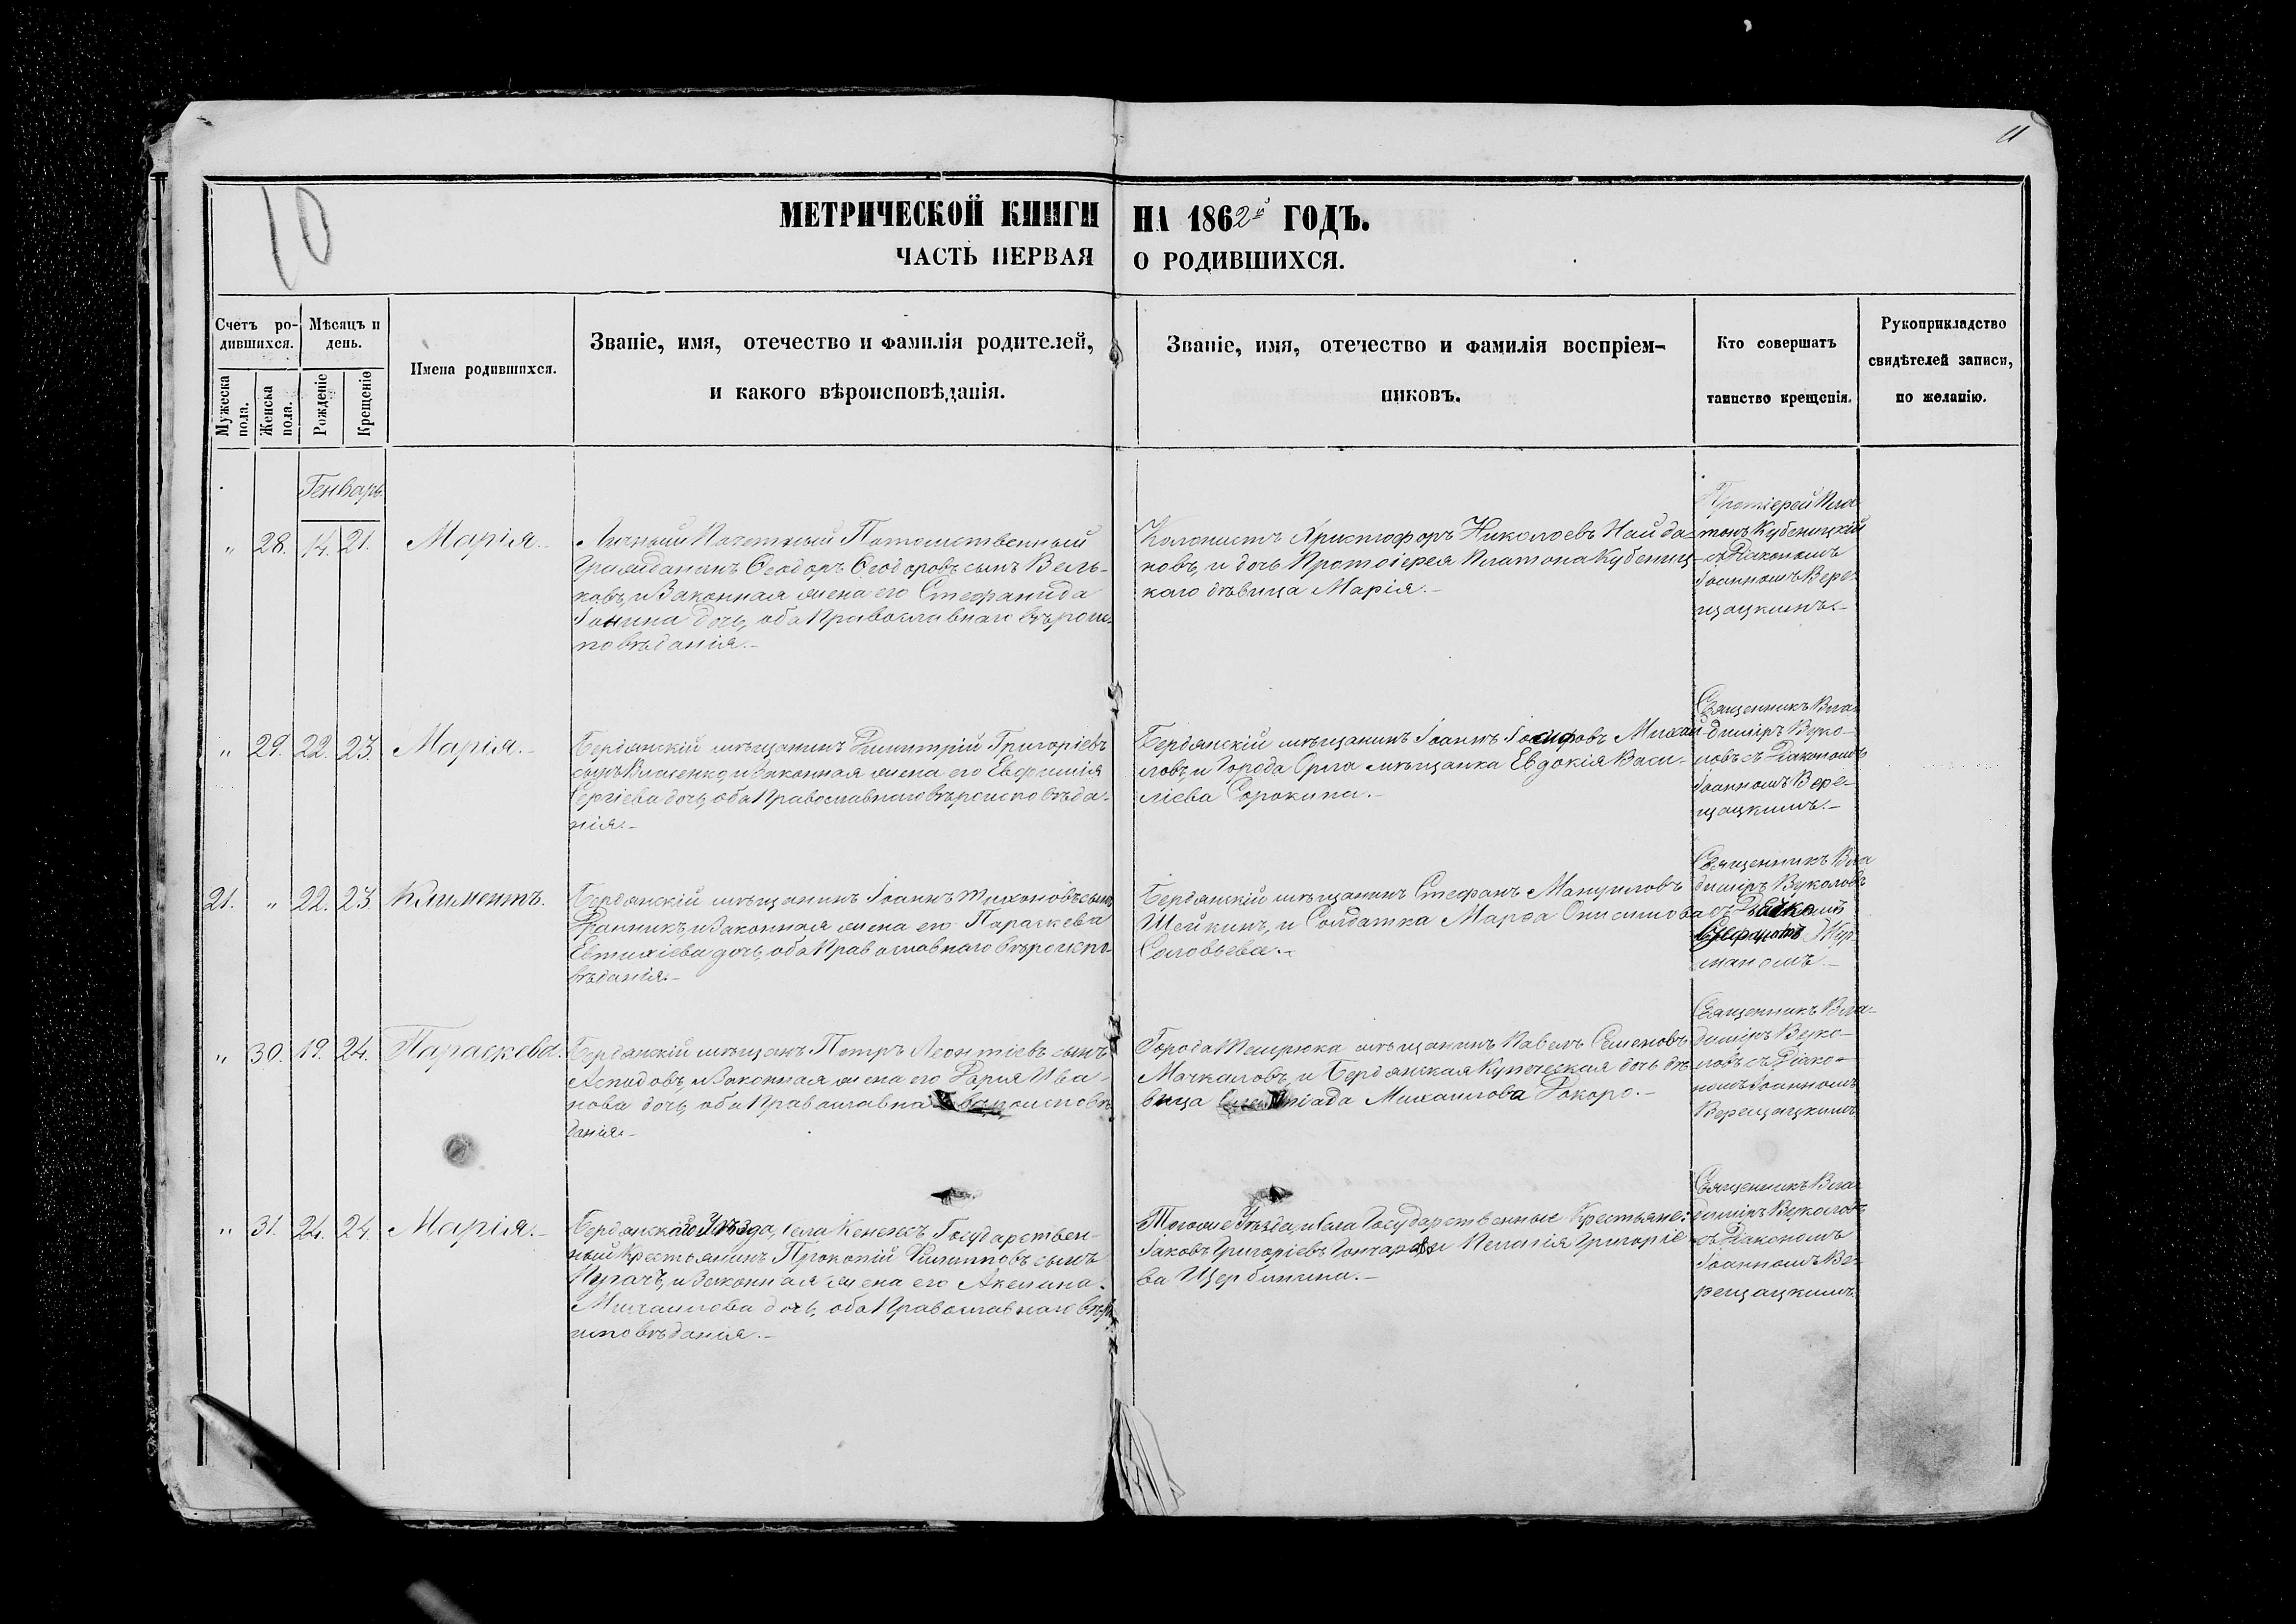 11
10
МЕТРИЧЕСКОЙ КНИГИ НА 1862й ГОДЪ.
ЧАСТЬ ПЕРВАЯ О РОДИВШИХСЯ.
Счетъ ро-
дившихся.
Мужеска
пола.
Женска
пола.
Мѣсяцъ и
день.
Рожденіе
Крещеніе
Имена родившихся.
Званіе, имя, отечество и фамилія родителей,
и какого вѣроисповѣданія.
Званіе, имя, отечество и фамилія воспріем-
никовъ.
Кто совершатъ
таинство крещенія.
Рукоприкладство
свидѣтелей записи,
по желанію.
Генварь
" 28. 14. 21. Марія.-
Личный Почетный Потомственный
Гражданинъ Ѳеодоръ Ѳеодоровъ сынъ Вель-
ковъ, и Законная жена его Стефанида
дочь, оба Православнаго вѣроис-
повѣданія.-
Колонистъ Христофоръ Николаевъ Найде-
новъ, и дочь Протоіерея Платона Кубениц-
каго дѣвица Марія.-
Протіерей Пла-
тонъ Кубеницкій
съ Діакономъ
Іоанномъ Вере-
щацкимъ.-
" 29. 22. 23. Марія.-
Бердянскій мѣщанинъ Димитрій Григоріевъ
сынъ Власенко, и Законная жена его Евфимія
Сергіева дочь, оба Православнаго вѣроисповѣда-
нія.-
Бердянскій мѣщанинъ Іоаннъ Іосифовъ Михай-
ловъ, и Города Орла мѣщанка Евдокія Васи-
ліева Сорокина.-
Священникъ Вла-
диміръ Вуко-
ловъ съ Діакономъ
Іоанномъ Вере-
щацкимъ.-
21. " 22. 23. Климентъ.
Бердянскій мѣщанинъ Іоаннъ Тихоновъ сынъ
и Законная жена его Параскева
Евтихіева дочь, оба Православнаго вѣроиспо-
вѣданія.-
Бердянскій мѣщанинъ Стефанъ Мануиловъ
Шейкинъ, и Солдатка Марѳа Онисимова
Соловьева.-
Священникъ Вла
диміръ Вуколовъ
съ
" 30. 19. 24. Параскева.
Бердянскій мѣщанъ Петръ Леонтіевъ сынъ
Аспидовъ, и Законная жена его Дарія Ива-
нова дочь, оба Православна
данія.-
Города Темрюка мѣщанинъ Павелъ Семеновъ
Мачкаловъ, и Бердянская Купеческая дочь дѣ-
вица Михаилова
Священникъ Вла-
диміръ Вуко-
ловъ съ Діако-
номъ Іоанномъ
Верещацкимъ
" 31. 24. 24. Марія.-
Бердянскаго Уѣзда, села Кенегезъ Государствен-
ный Крестьянинъ Прокопій Филипповъ сынъ
Пугачъ, и Законная жена его Акилина
Михаилова дочь, оба Православнаго вѣро-
исповѣданія.-
Тогоже Уѣзда, и Села Государственные Крестьяне:
Іаковъ Григоріевъ Гончаровъ и Пелагія Григоріе-
ва Щербинина.-
Священникъ Вла-
диміръ Вуколовъ
съ Діакономъ
Іоанномъ Ве-
рещацкимъ